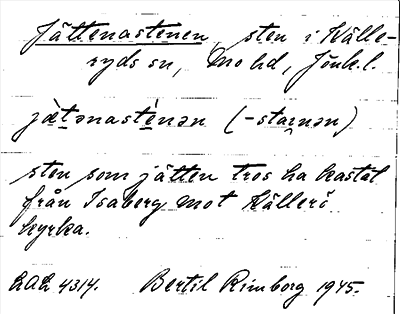 Jättenastenen, sten i Källe-
ryds sn, Mo hd, Jönk. l.
jæ̀tənastènən (-stai̯nən)
sten som jätten tros ha kastat
från Isaberg mot Källerö
kyrka.
LAL 4314. Bertil Rimborg 1945.